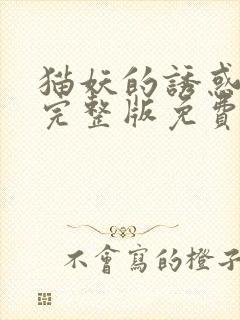 猫妖的誘惑
完整版免費
不會寫的橙子